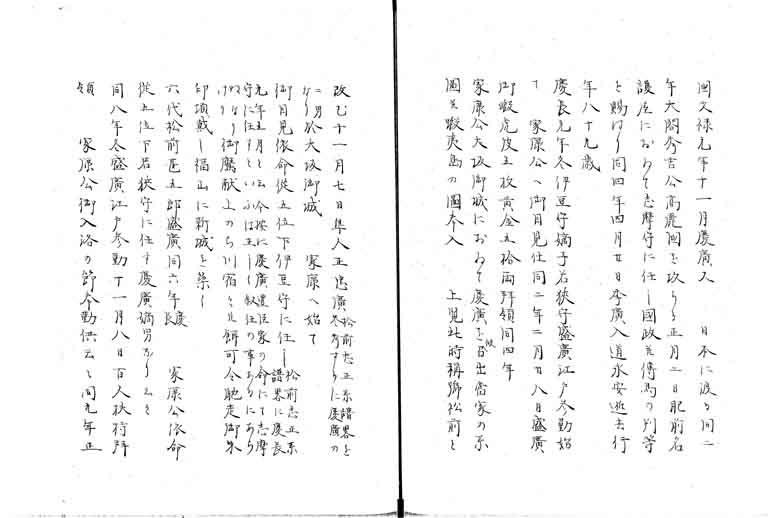 國文禄元年十一月慶廣又 日本に渡り同二
年大閤秀吉公高麗國を攻り正月二日肥前名
護屋におゐて志摩守に任し國政并傳馬の判等
を賜はり同四年四月廿日季廣入道永安逝去行
年八十九歳
慶長元年冬伊豆守嫡子若狭守盛廣江戸参勤始
て 家康公へ御目見仕同二年二月廿八日盛廣
御蝦虎皮五枚黄金五拾両拝領同四年
家康公大坂御城におゐて慶廣を召出候當家の系
圖并蝦夷島の圖奉入 上覧此時稱號松前と
改む十一月七日隼人正忠廣松前志正系譜畧を
参考するに慶廣の
二男於大坂御城 家康へ始て
御目見依命從五位下伊豆守に任し松前志正系
譜畧に慶長
元年五月といふ今按に慶廣遺法家の命にて志摩
守に任すといふは正しく叙任の事ありにあら
御鷹献上のもの川宿々に餌可令馳走御朱
印頂戴し福山に新城を築く
六代松前甚五郎盛廣同六年慶長 家康公依命
從五位下若狭守に任す慶廣嫡男
同八年冬盛廣江戸参勤十一月八日百人扶持拝
領 家康公御入洛の節参勤供 同九年正